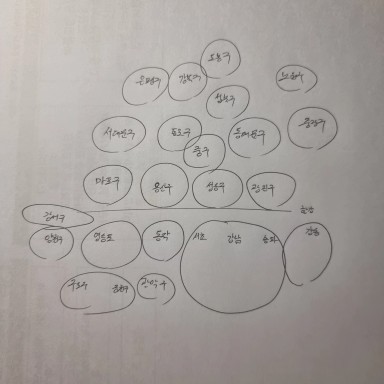 도봉구
은평구
강북구
노원구
성북구
중랑구
서대문구
종로구
동대문구
중구
마포구
용산구
성동구
광진구
강서구
한강
양천구
영등포
동작
서초
강남
송파
강동
구로구
금천구
관악구